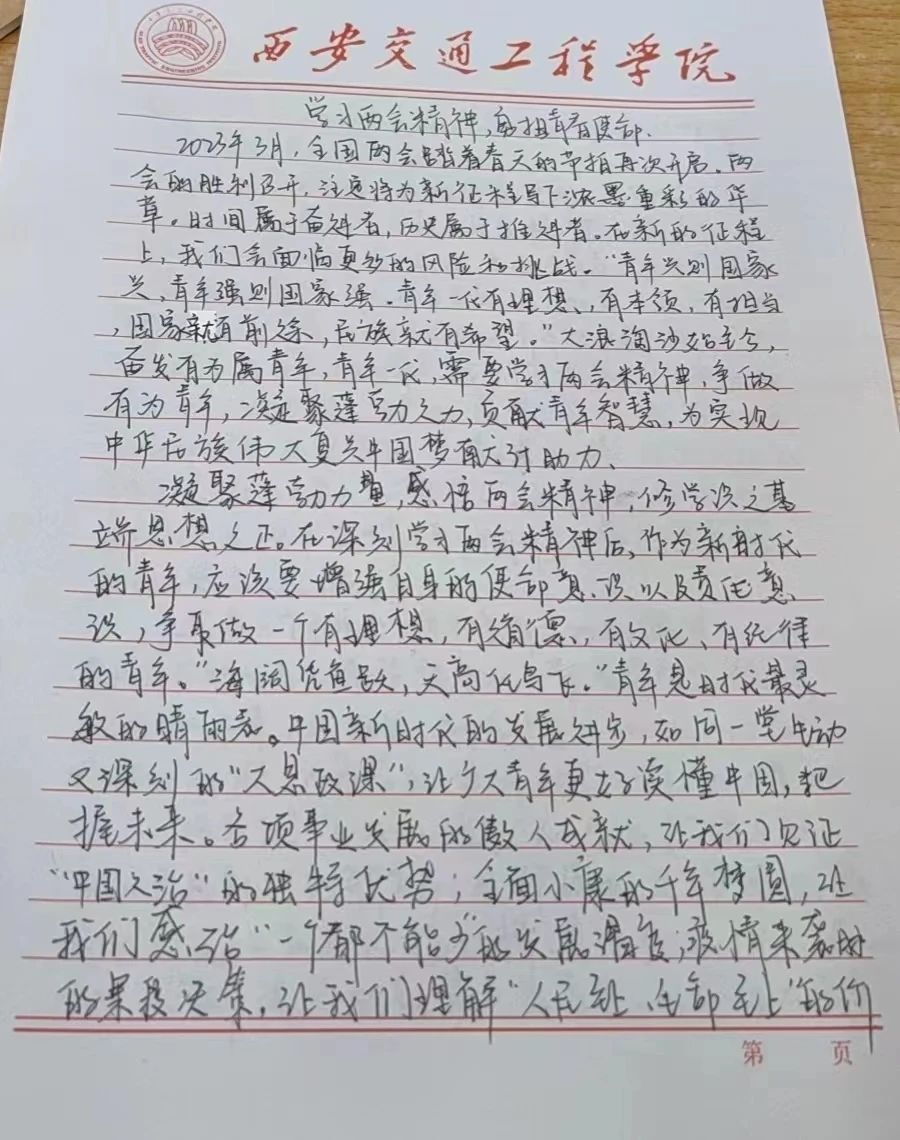 西安交通工程学院
学习两会精神，勇担青春使命.
2023年3月，全国两会踏着春天的节拍再次开启。两
会的胜利召开，注定将为新征程写下浓墨重彩的华
章。时间属于奋进者，历史属于推进者。在新的征程
上，我们会面临更多的风险和挑战。“青年兴则国家
兴，青年强则国家强。青年一代有理想、有本领，有担当
，国家就有前途，民族就有希望。”大浪淘沙始至今，
奋发有为属青年，青年一代，需要学习两会精神，争做
有为青年，凝聚蓬勃之力，贡献青年智慧，为实现
中华民族伟大复兴中国梦献计助力、
凝聚蓬勃力量，感悟两会精神，修学识之基
端思想之正。在深刻学习两会精神后，作为新时代
的青年，应该要增强自身的使命意识以及责任意
识，争取做一个有理想，有道德，有文化、有纪律
的青年。“海阔凭鱼跃，天高任鸟飞。”青年是时代最灵
敏的晴雨表。中国新时代的发展进步，如同一堂生动
又深刻的“大思政课”，让广大青年更好读懂中国，把
握未来。各项事业发展的傲人成就，让我们见证
“中国之治”的独特优势；全面小康的千年梦圆，让
我们感悟“一个都不能少”的发展温度；疫情来袭时
的果段决策，让我们理解“人民至上、生命至上”的价
第 页